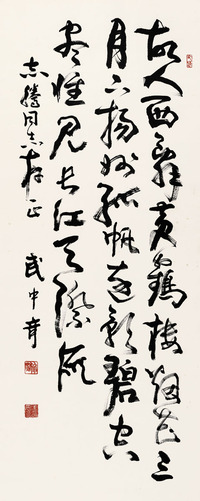 故人西辞黄鹤楼烟花三
月下扬州孤帆远影碧空
尽惟见长江天际流
志腾同志存正
武中奇